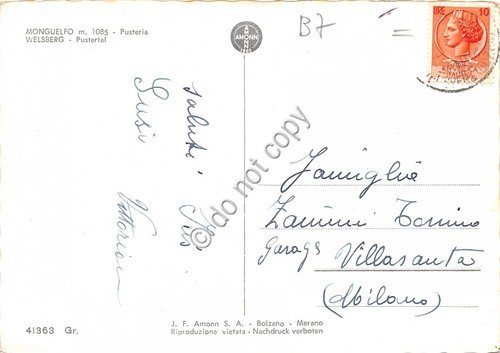 MONGUELFO m. 1085 - Pusteria
WELSBERG - Pustertal
AMONN
B7
=
LIRE 10
saluti
Susi
Vittorian
Famiglia
Zanini Tonino
Garage Villasanta
(Milano)
do not copy
J. F. Amonn S. A. - Bolzano - Merano
Riproduzione vietata - Nachdruck verboten
41363 Gr.